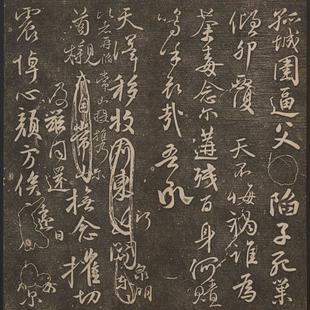 孤城圍逼父陷子死巢
傾卵覆天不悔禍誰為
荼毒念爾遘殘百身何贖
嗚呼哀哉吾承
天澤移牧河東近
河關泉明
比者再陷常山提攜爾
首櫬亦自常山撫念摧切
及茲同還
震悼心顏方俟遠日